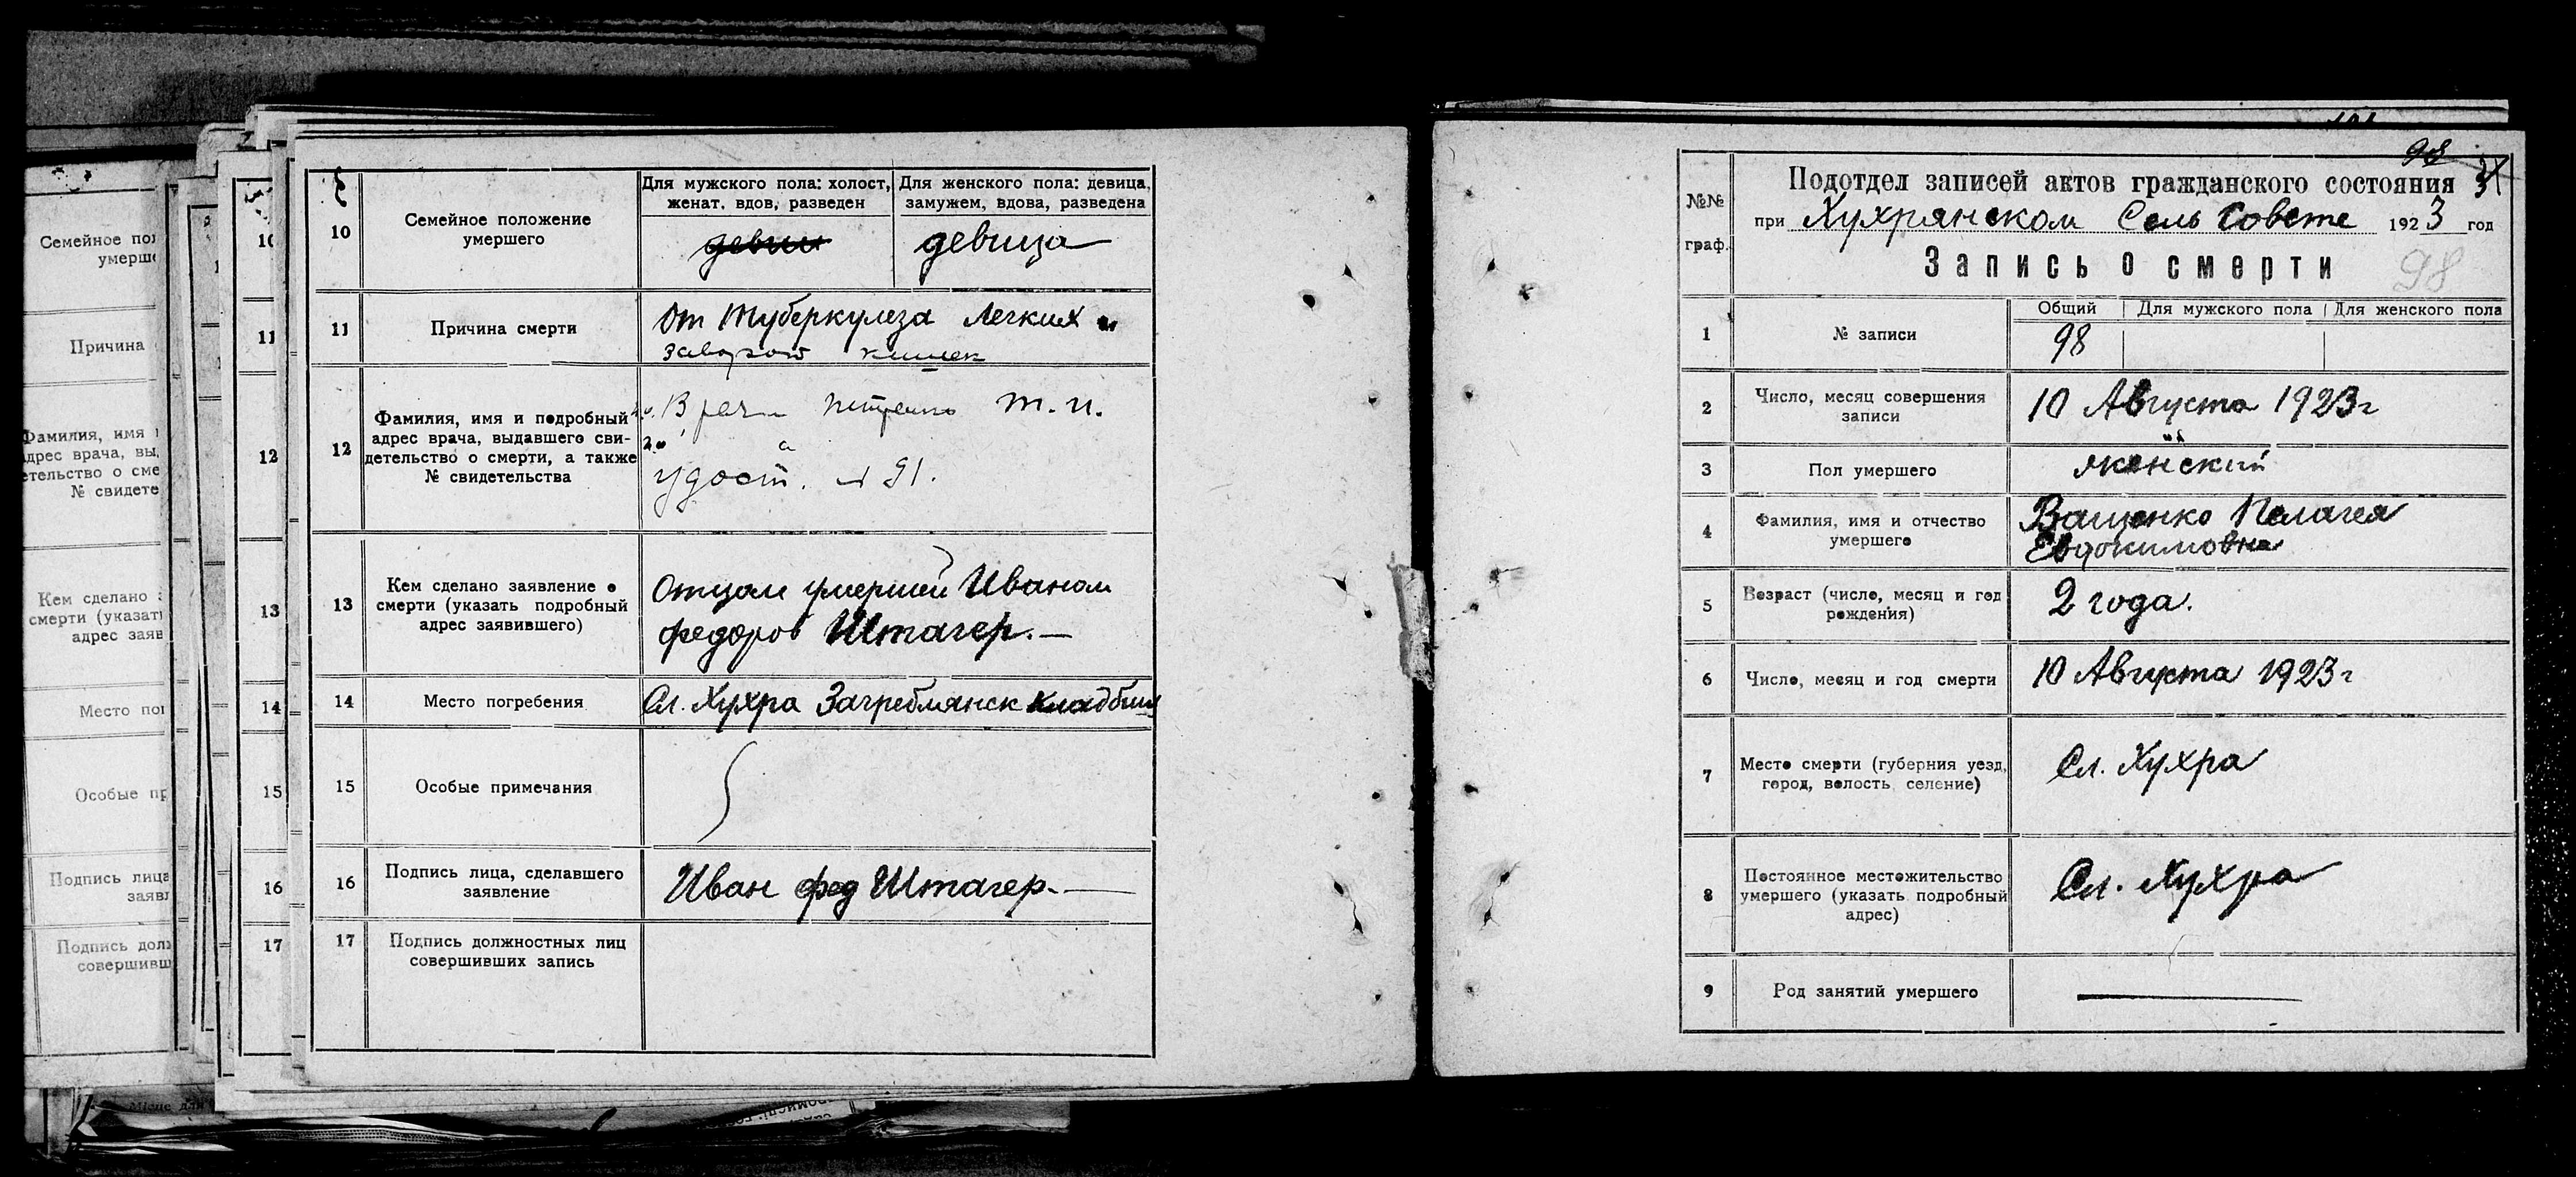 Семейное положение
умершего
Причина
Фамилия, имя
адрес врача, вы
№ свидете
Кем сделано
смерти (указат
адрес заяв
Место
Особые
Подпись лица
заяв
Подпись
10
11
12
13
14
15
16
17
10
Семейное положение
умершего
Для мужского пола: холост,
женат, вдов, разведен
Для женского пола: девица,
замужем, вдова, разведена
девица
11
Причина смерти
От туберкулеза легких и
заворот кишек
12
Фамилия, имя и подробный
адрес врача, выдавшего сви-
детельство о смерти, а также
№ свидетельства
Врач Т. И.
удост. 91.
13
Кем сделано заявление о
смерти (указать подробный
адрес заявившего)
Отцом умершей Иваном
Федоров Штагер.—
14
Место погребения
Сл. Хухра Загреблянск Кладбищ
15
Особые примечания
16
Подпись лица, сделавшего
заявление
Иван Фед Штагер.—
17
Подпись должностных лиц
совершивших запись
98
№№
граф.
Подотдел записей актов гражданского состояния
при Хухрянском Сель Совете 1923 год
Запись о смерти
98
1
№ записи
Общий
Для мужского пола
Для женского пола
98
2
Число, месяц совершения
записи
10 Августа 1923 г
3
Пол умершего
женский
4
Фамилия, имя и отчество
умершего
Ващенко Пелагея
Евдокимовна
5
Возраст (число, месяц и год
рождения)
2 года.
6
Число, месяц и год смерти
10 Августа 1923 г
7
Место смерти (губерния уезд,
город, волость селение)
Сл. Хухра
8
Постоянное местожительство
умершего (указать подробный
адрес)
Сл. Хухра
9
Род занятий умершего